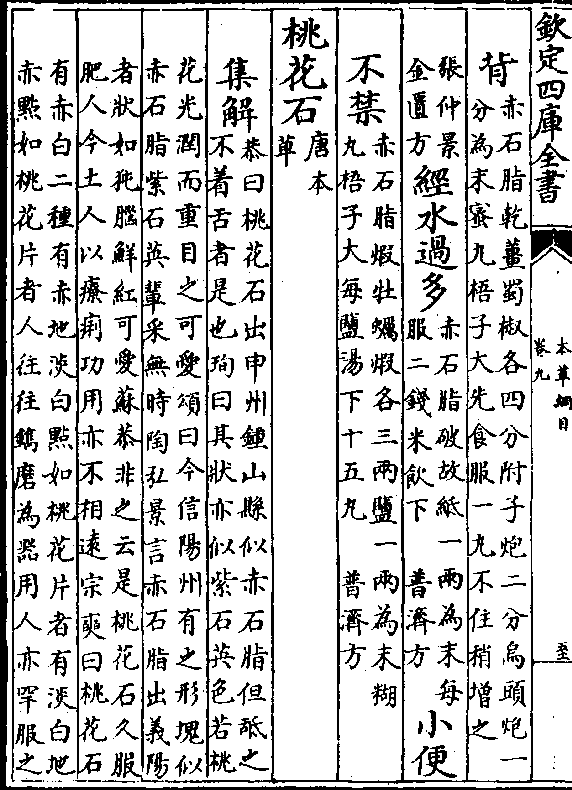 欽定四庫全書
本草綱目
卷九
背
赤石脂乾薑蜀椒各四分附子炮二分烏頭炮一
分為末蜜丸梧子大先食服一丸不住稍增之
張仲景
金匱方
經水過多
赤石脂破故紙一兩為末每
服二錢米飲下 普濟方
小便
不禁
赤石脂煅牡蠣煅各三兩鹽一兩為末糊
丸梧子大每鹽湯下十五丸 普濟方
桃花石
唐本
草
集解
恭曰桃花石出申州鍾山縣似赤石脂但䑛之
不着舌者是也珣曰其狀亦似紫石英色若桃
花光潤而重目之可愛頌曰今信陽州有之形塊似
赤石脂紫石英輩采無時陶弘景言赤石脂出義陽
者狀如㹠腦鮮紅可愛蘇恭非之云是桃花石久服
肥人今土人以療痢功用亦不相遠宗奭曰桃花石
有赤白二種有赤地淡白點如桃花片者有淡白地
赤點如桃花片者人往往鐫磨為器用人亦罕服之